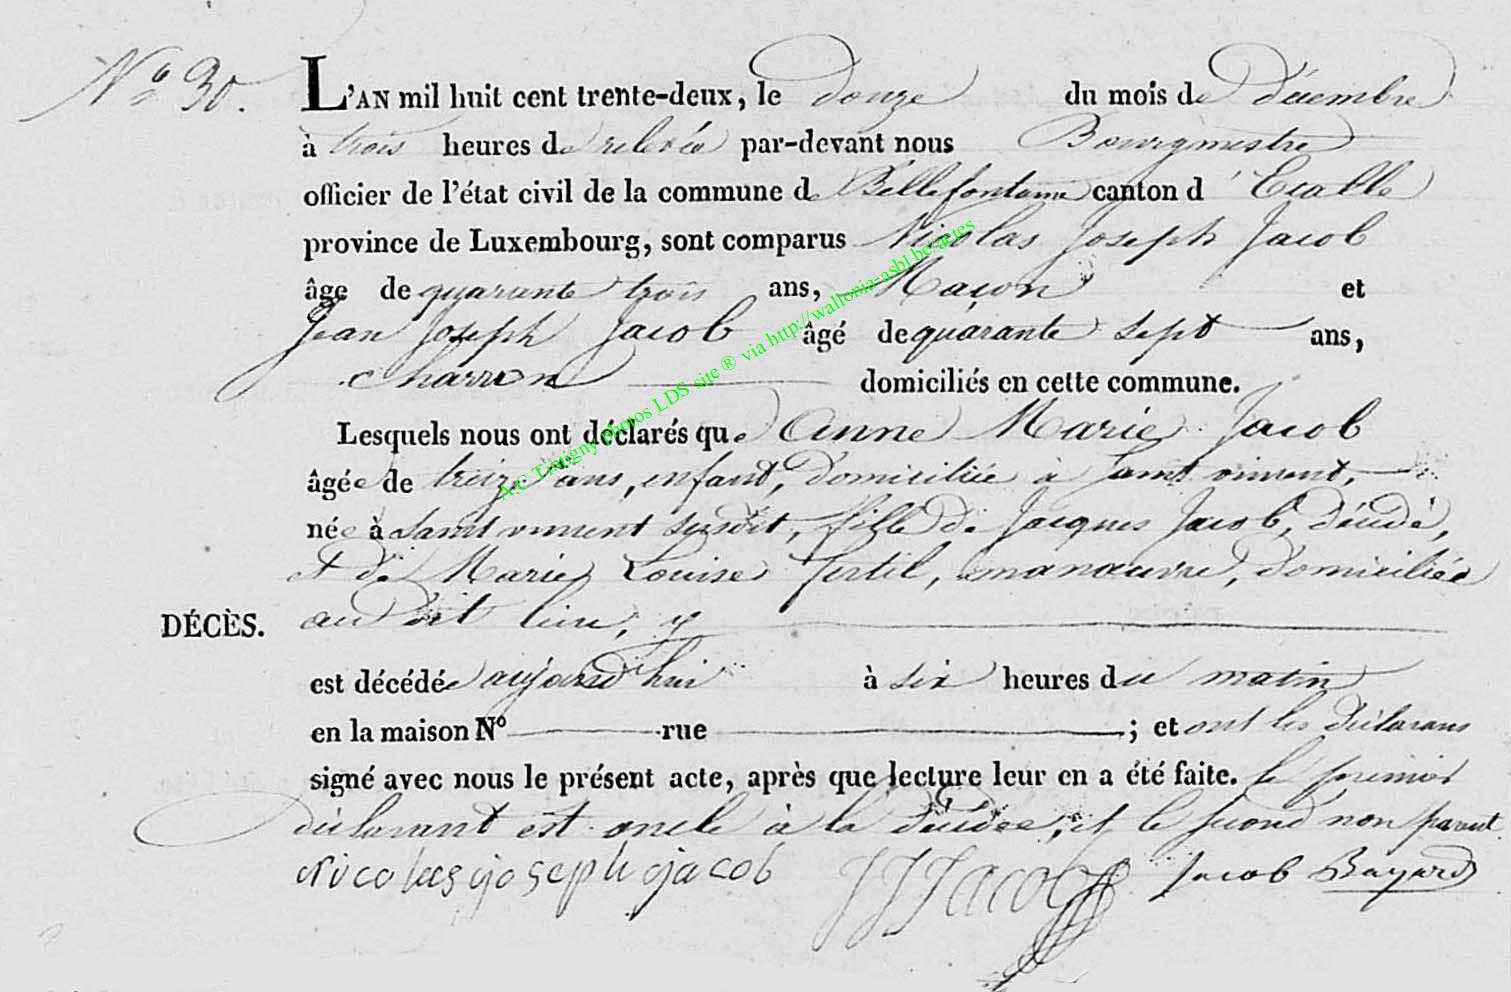 N° 30.
L'AN mil huit cent trente-deux, le douze du mois de décembre
à trois heures de relevée par-devant nous Bourgmestre
officier de l'état civil de la commune de Bellefontaine canton d'Etalle
province de Luxembourg, sont comparus Nicolas Joseph Jacob
âgé de quarante trois ans, Maçon et
Jean Joseph Jacob âgé de quarante sept ans,
charron domiciliés en cette commune.
Lesquels nous ont déclarés que Anne Marie Jacob
âgée de treize ans, enfant, domiciliée à Saint vincent,
née à Saint vincent susdit, fille de Jacques Jacob, décédé,
et de Marie Louise Fertil, manœuvre, domiciliée
au dit lieu, y
DÉCÈS.
est décédée aujourd'hui à six heures du matin
en la maison N° rue ; et ont les déclarans
signé avec nous le présent acte, après que lecture leur en a été faite. le premier
déclarant est oncle à la décédée, et le second non parent.
Nicolas joseph jacob JJJacob Jacob Bayard
A.C Tintigny photos LDS site ® via http://wallonia-asbl.be/actes